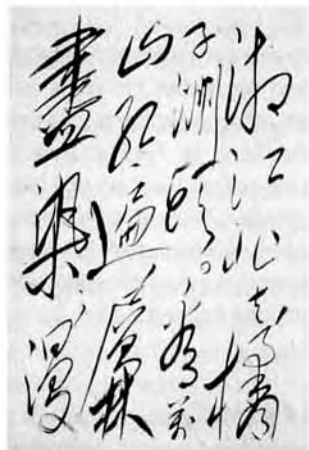 湘江北去橘
子洲頭。看萬
山紅遍層林
盡染漫